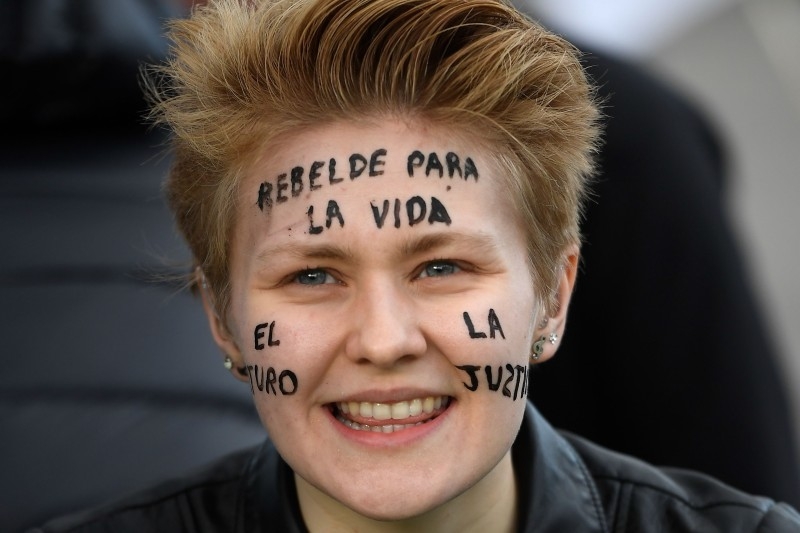 REBELDE PARA
LA VIDA
EL
TURO
LA
JUSTI